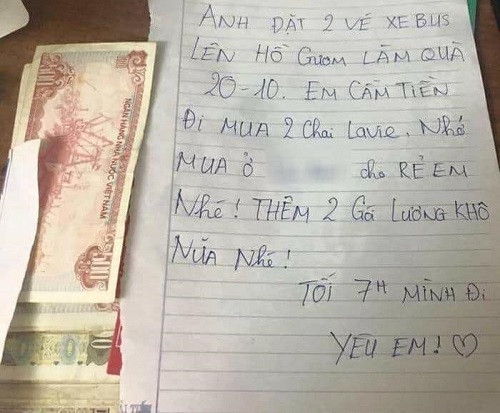 ANH ĐẶT 2 VÉ XE BUS
LÊN HỒ GƯƠM LÀM QUÀ
20-10. EM CẦM TIỀN
ĐI MUA 2 Chai Lavie, Nhớ
MUA Ở cho RẺ EM
Nhé! THÊM 2 Gói LƯƠNG KHÔ
NỮA Nhé!
TỐI 7H MÌNH ĐI
YÊU EM! ♡
NGÂN HÀNG NHÀ NƯỚC VIỆT NAM